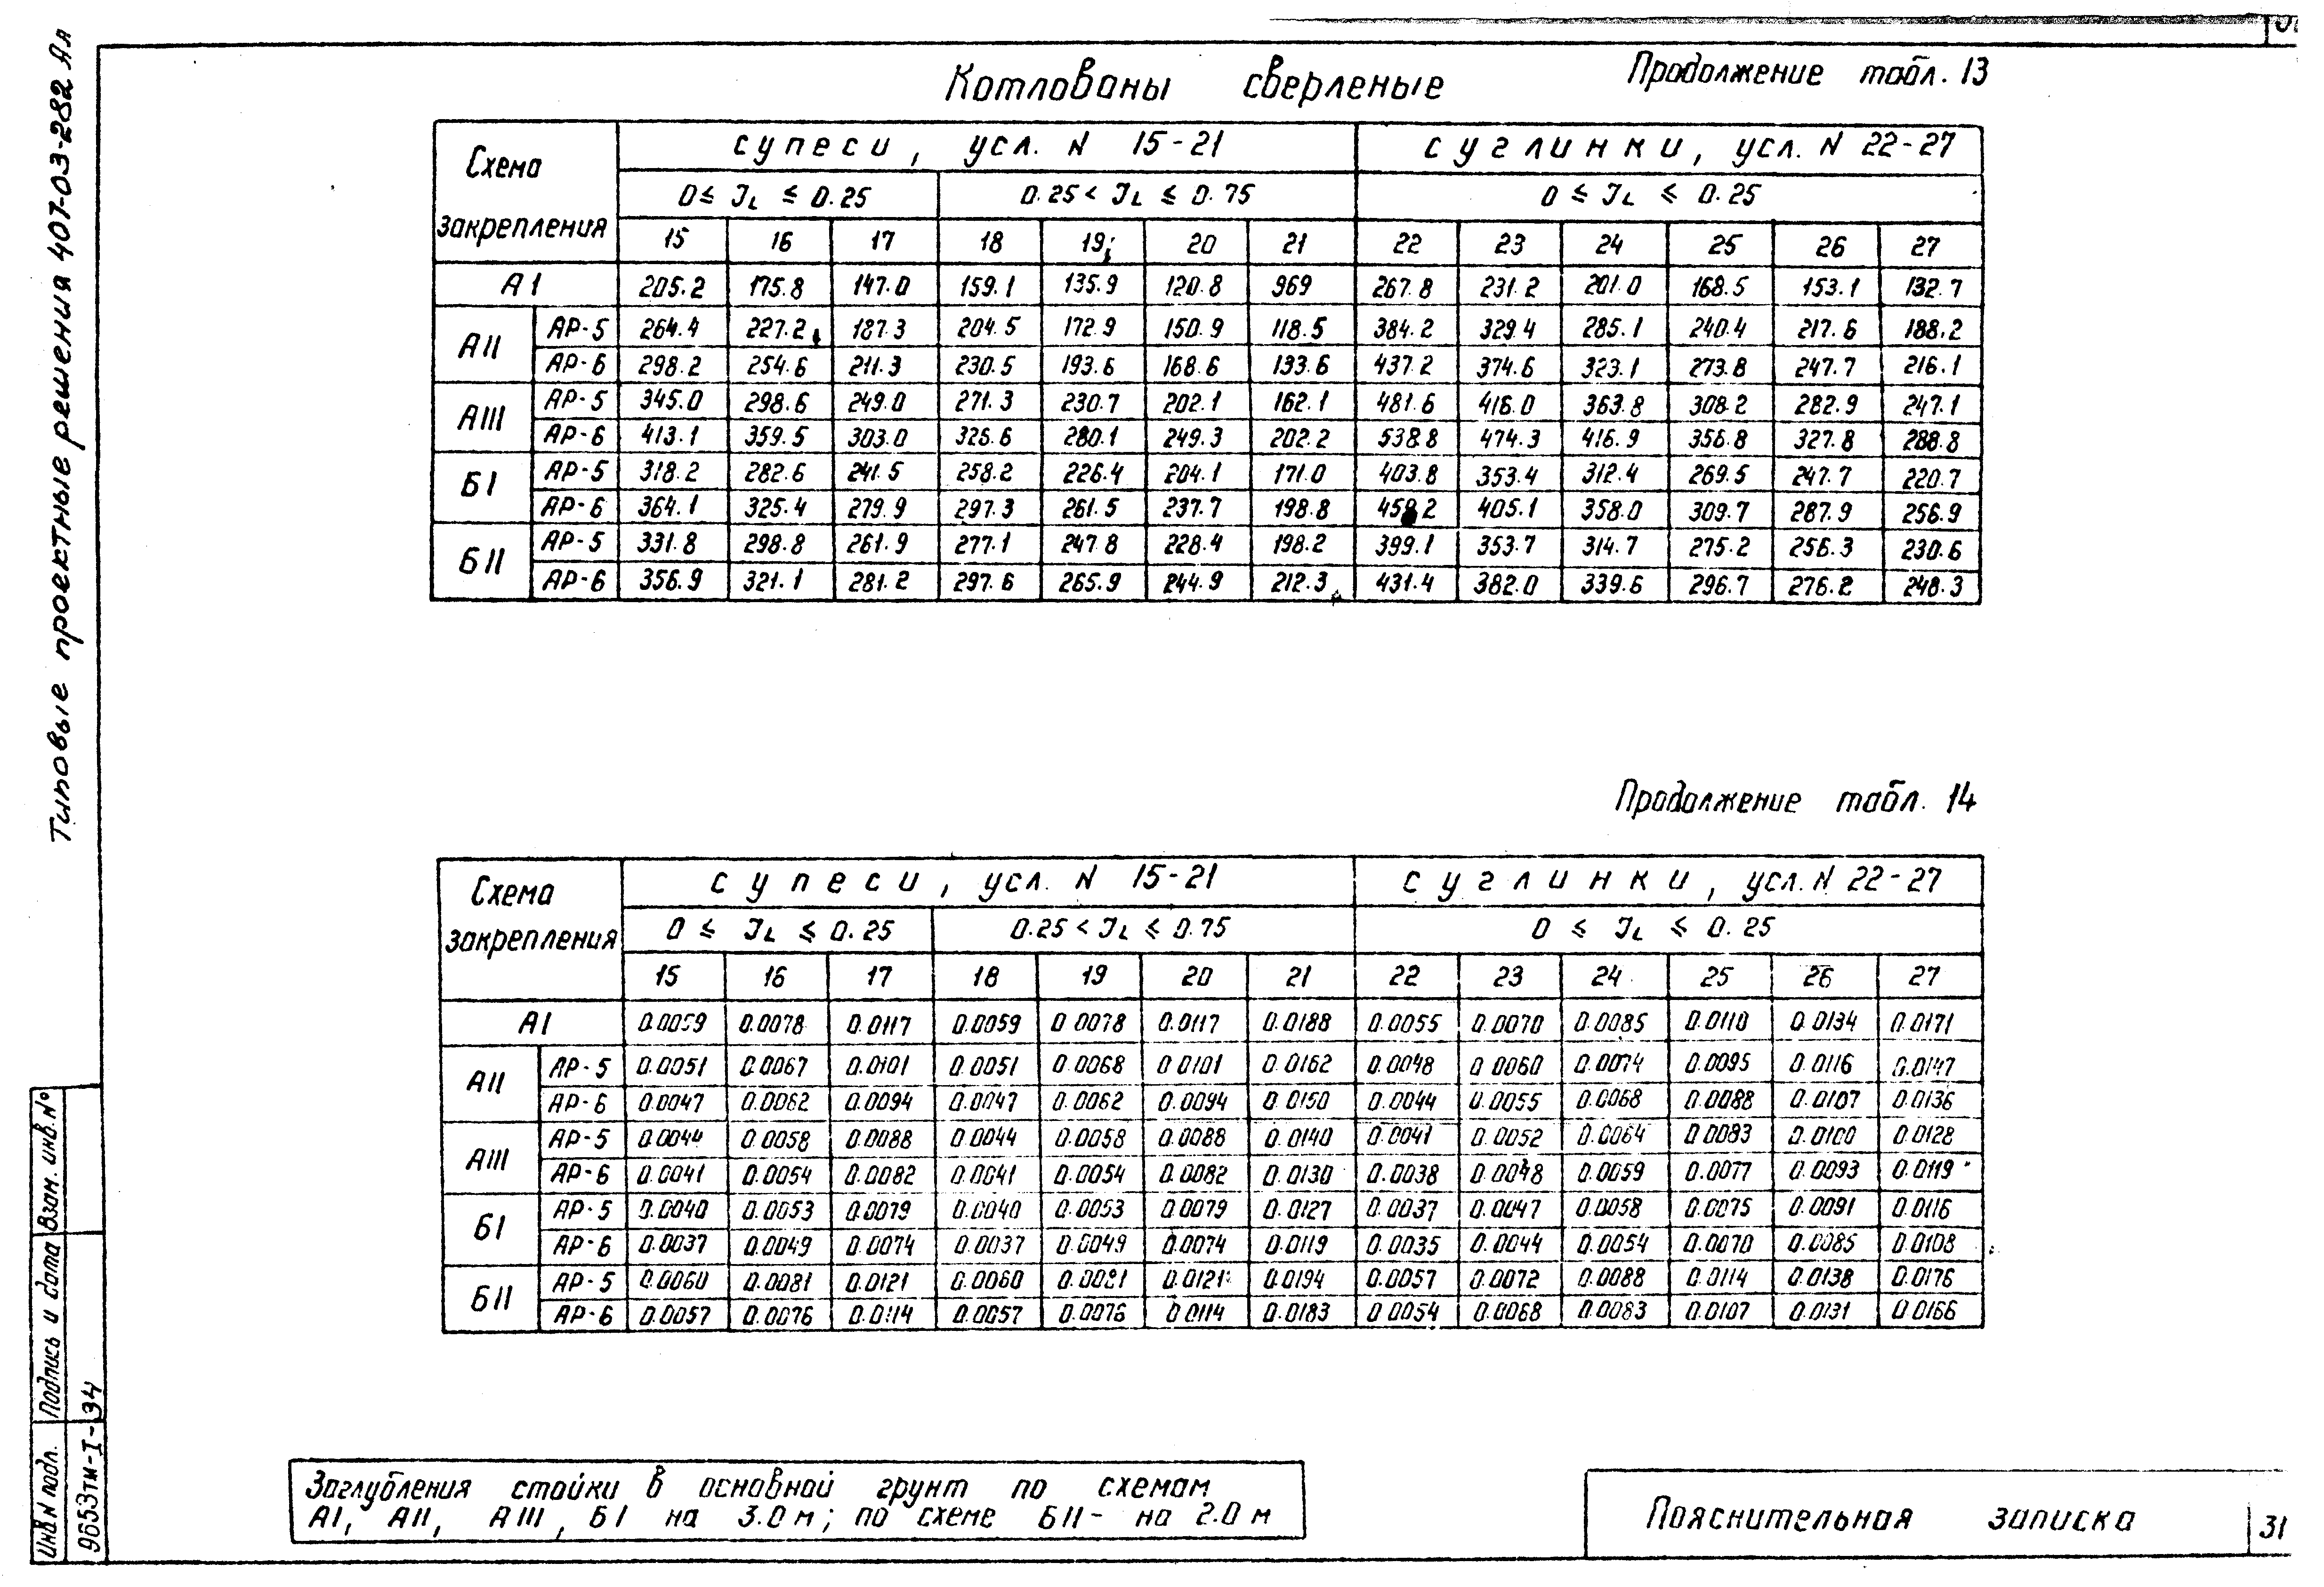 Типовые проектные решения 407-03-282 Ал
Котлованы сверленые
Продолжение табл. 13
Схема закрепления | супеси, усл. N 15-21 | суглинки, усл. N 22-27
0≤ JL ≤ 0.25 | 0.25< JL ≤ 0.75 | 0 ≤ JL ≤ 0.25
15 16 17 18 19 20 21 22 23 24 25 26 27
АI 205.2 175.8 147.0 159.1 135.9 120.8 969 267.8 231.2 201.0 168.5 153.1 132.7
АII АР-5 264.4 227.2 187.3 204.5 172.9 150.9 118.5 384.2 329.4 285.1 240.4 217.6 188.2
АР-6 298.2 254.6 211.3 230.5 193.6 168.6 133.6 437.2 374.6 323.1 273.8 247.7 216.1
АIII АР-5 345.0 298.6 249.0 271.3 230.7 202.1 162.1 481.6 416.0 363.8 308.2 282.9 247.1
АР-6 413.1 359.5 303.0 326.6 280.1 249.3 202.2 538.8 474.3 416.9 356.8 327.8 288.8
БI АР-5 318.2 282.6 241.5 258.2 226.4 204.1 171.0 403.8 353.4 312.4 269.5 247.7 220.7
АР-6 364.1 325.4 279.9 297.3 261.5 237.7 198.8 458.2 405.1 358.0 309.7 287.9 256.9
БII АР-5 331.8 298.8 261.9 277.1 247.8 228.4 198.2 399.1 353.7 314.7 275.2 256.3 230.6
АР-6 356.9 321.1 281.2 297.6 265.9 244.9 212.3 431.4 382.0 339.6 296.7 276.2 248.3
Продолжение табл. 14
Схема закрепления | супеси, усл. N 15-21 | суглинки, усл. N 22-27
0 ≤ JL ≤ 0.25 | 0.25 < JL ≤ 0.75 | 0 ≤ JL ≤ 0.25
15 16 17 18 19 20 21 22 23 24 25 26 27
АI 0.0059 0.0078 0.0117 0.0059 0.0078 0.0117 0.0188 0.0055 0.0070 0.0085 0.0110 0.0134 0.0171
АII АР-5 0.0051 0.0067 0.0101 0.0051 0.0068 0.0101 0.0162 0.0048 0.0060 0.0074 0.0095 0.0116 0.0147
АР-6 0.0047 0.0062 0.0094 0.0047 0.0062 0.0094 0.0150 0.0044 0.0055 0.0068 0.0088 0.0107 0.0136
АIII АР-5 0.0044 0.0058 0.0088 0.0044 0.0058 0.0088 0.0140 0.0041 0.0052 0.0064 0.0083 0.0100 0.0128
АР-6 0.0041 0.0054 0.0082 0.0041 0.0054 0.0082 0.0130 0.0038 0.0048 0.0059 0.0077 0.0093 0.0119
БI АР-5 0.0040 0.0053 0.0079 0.0040 0.0053 0.0079 0.0127 0.0037 0.0047 0.0058 0.0075 0.0091 0.0116
АР-6 0.0037 0.0049 0.0074 0.0037 0.0049 0.0074 0.0119 0.0035 0.0044 0.0054 0.0070 0.0085 0.0108
БII АР-5 0.0060 0.0081 0.0121 0.0060 0.0081 0.0121 0.0194 0.0057 0.0072 0.0088 0.0114 0.0138 0.0176
АР-6 0.0057 0.0076 0.0114 0.0057 0.0076 0.0114 0.0183 0.0054 0.0068 0.0083 0.0107 0.0131 0.0166
Заглубления стойки в основной грунт по схемам
АI, АII, АIII, БI на 3.0 м; по схеме БII- на 2.0 м
Пояснительная записка
31
Инв N подл. Подпись и дата Взам. инв. №
9653тм-I-34